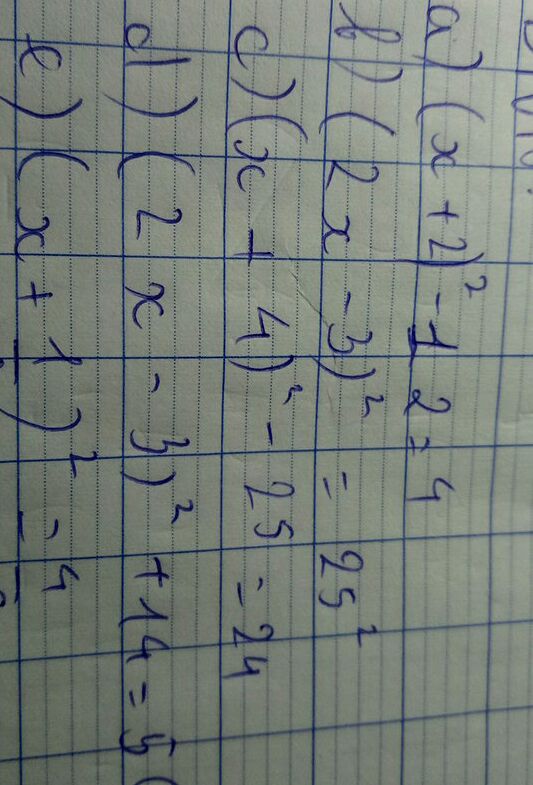 a) (x + 2)² - 12 = 4
b) (2x - 3)² = 25²
c) (x + 4)² - 25 = 24
d) (2x - 3)² + 14 = 5
e) (x + 1)² = 4